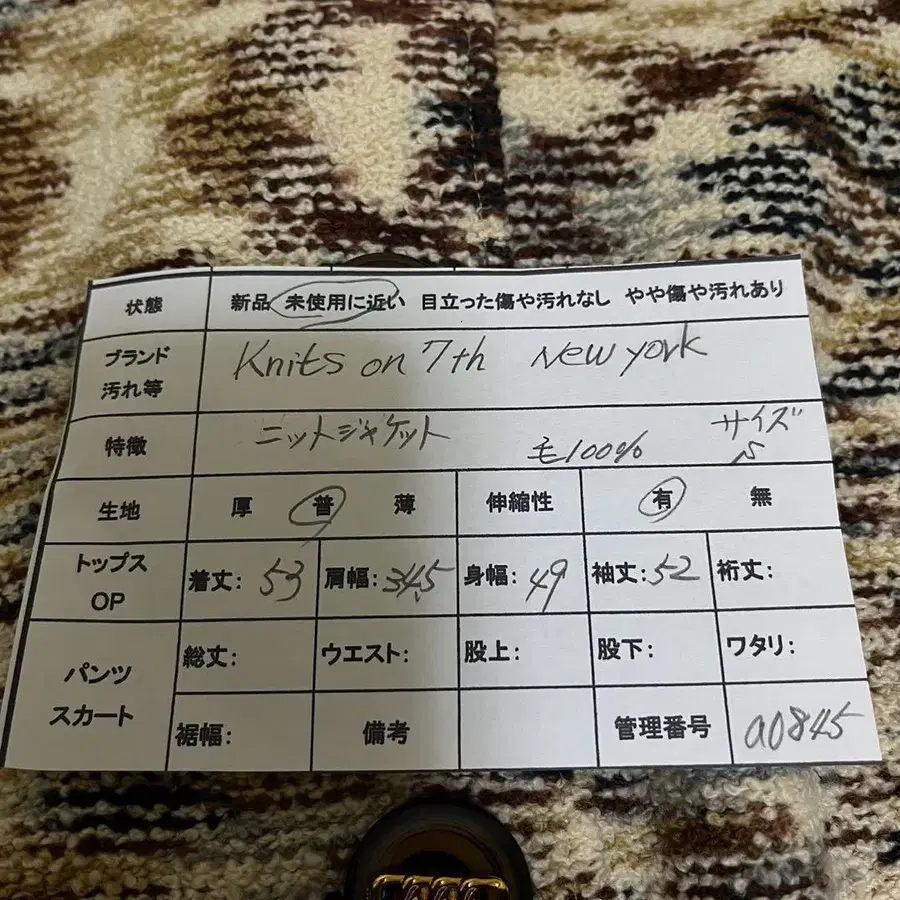 状態 新品 未使用に近い 目立った傷や汚れなし やや傷や汚れあり
ブランド 汚れ等 Knits on 7th New york
特徴 ニットジャケット 毛100% サイズ S
生地 厚 普 薄 伸縮性 有 無
トップス OP 着丈: 53 肩幅: 34.5 身幅: 49 袖丈: 52 裄丈:
パンツ スカート 総丈: ウエスト: 股上: 股下: ワタリ:
裾幅: 備考 管理番号 a0845